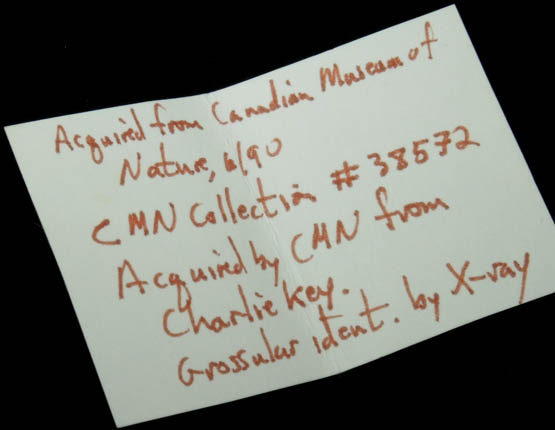 Acquired from Canadian Museum of
Nature, 6/90
CMN Collection # 38572
Acquired by CMN from
Charlie Key.
Grossular ident. by X-ray